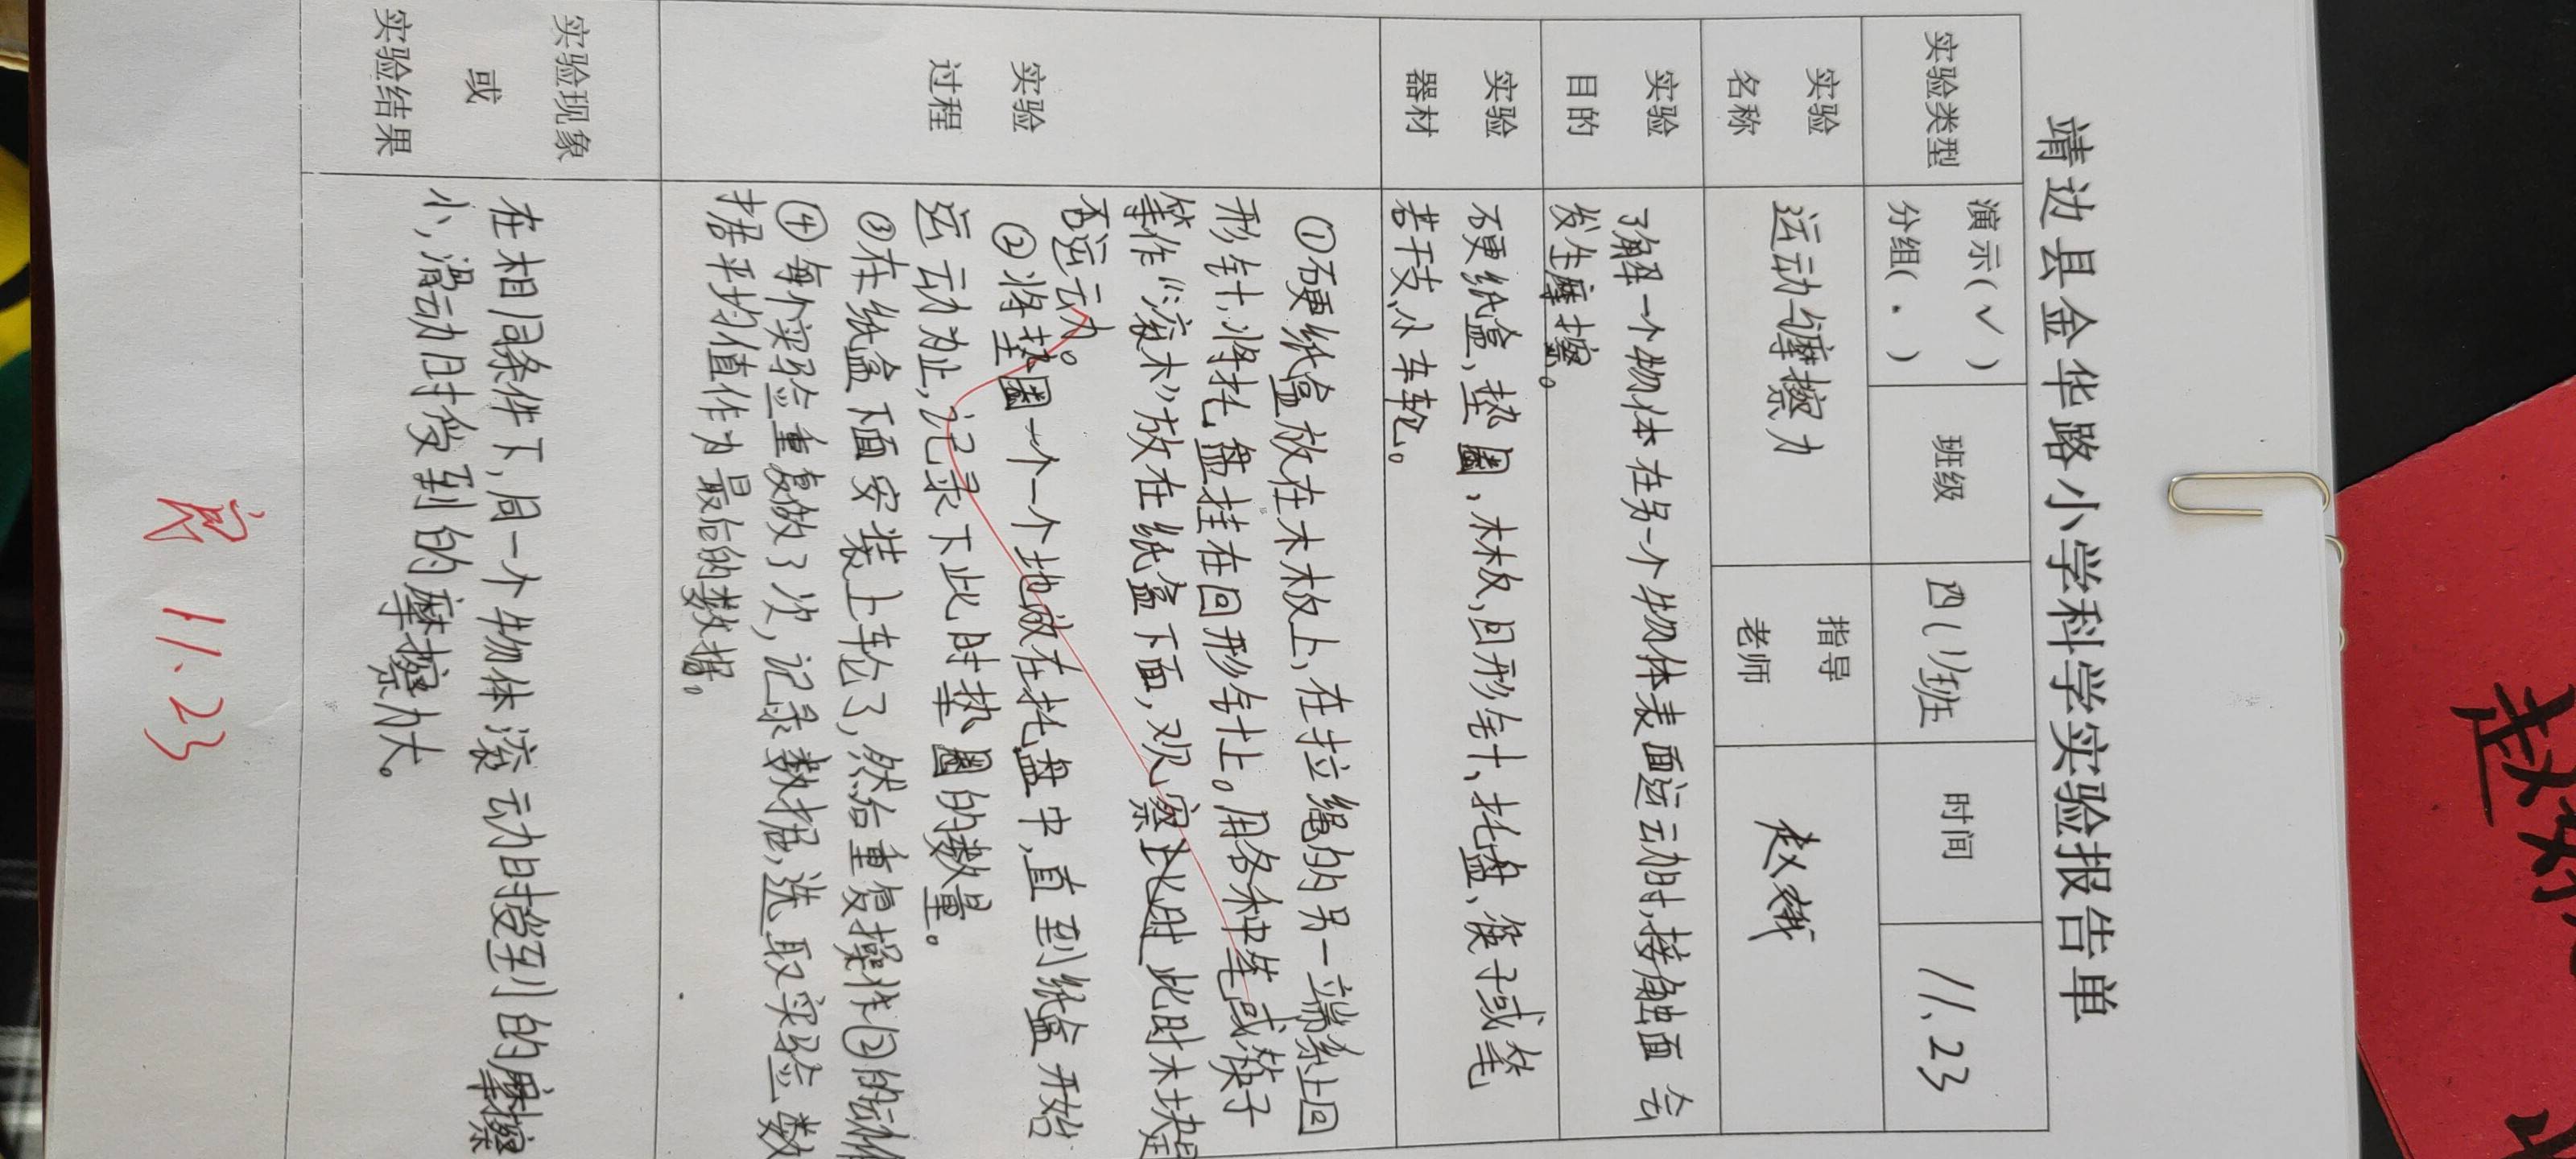 靖边县金华路小学科学实验报告单
实验类型 演示(✓) 分组(.) 班级 四(1)班 时间 11.23
实验名称 运动与摩擦力 指导老师 赵娥
实验目的
了解一个物体在另一个物体表面运动时,接触面会
发生摩擦。
实验器材
硬纸盒,垫圈,木板,回形针、托盘、筷子或笔
若干支,小车轮。
实验过程
①硬纸盒放在木板上,在拉绳的另一端系上回
形针,将托盘挂在回形针上。用各种笔或筷子
等作“滚木”放在纸盒下面,观察此时此时木块是
否运动。
②将垫圈一个一个地放在托盘中,直到纸盒开始
运动为止,记录下此时垫圈的数量。
③在纸盒下面安装上轮子,然后重复操作②的动作
④每个实验重复做3次,记录数据,选取实验数
据平均值作为最后的数据。
实验现象或实验结果
在相同条件下,同一个物体滚动时受到的摩擦
小,滑动时受到的摩擦力大。
11.23